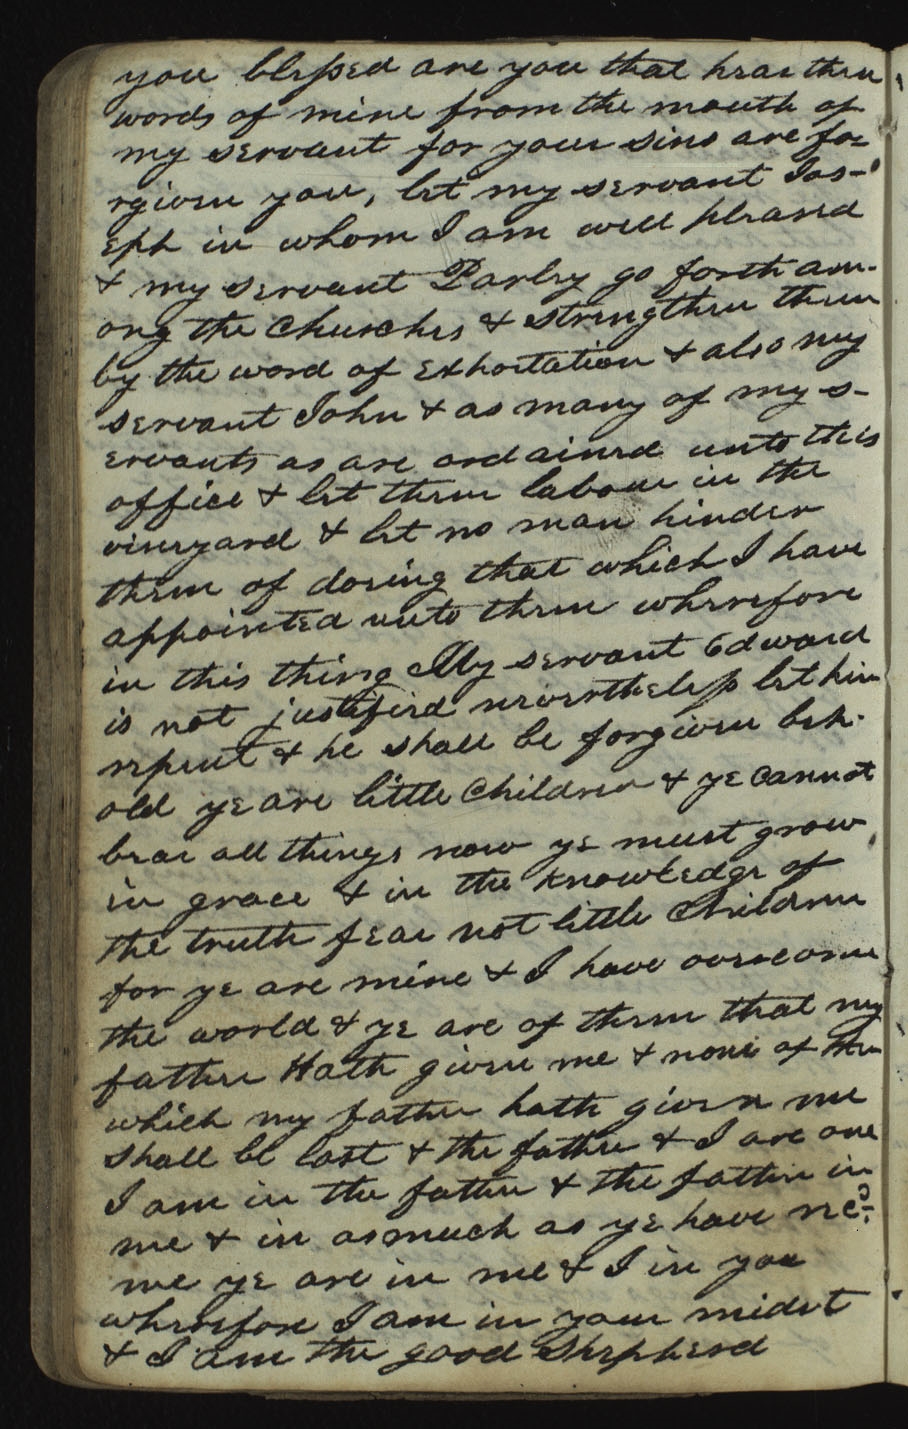 you blessed are you that hear these
words of mine from the mouth of
my servant for your sins are fo-
rgiven you, let my servant Jos-
eph in whom I am well pleased
& my servant Parley go forth am-
ong the Churches & strengthen them
by the word of exhortation & also my
servant John & as many of my s-
ervants as are ordained unto this
office & let them labour in the
vineyard & let no man hinder
them of doeing that which I have
appointed unto them wherefore
in this thing My servant Edward
is not justified nevertheless let him
repent & he shall be forgiven beh-
old ye are little Children & ye cannot
bear all things now ye must grow
in grace & in the knowledge of
the truth fear not little Children
for ye are mine & I have overcome
the world & ye are of them that my
father Hath given me & none of them
which my father hath given me
shall be lost & the father & I are one
I am in the father & the father in
me & in asmuch as ye have recd
me ye are in me & I in you
wherefore I am in your midst
& I am the good Shepherd